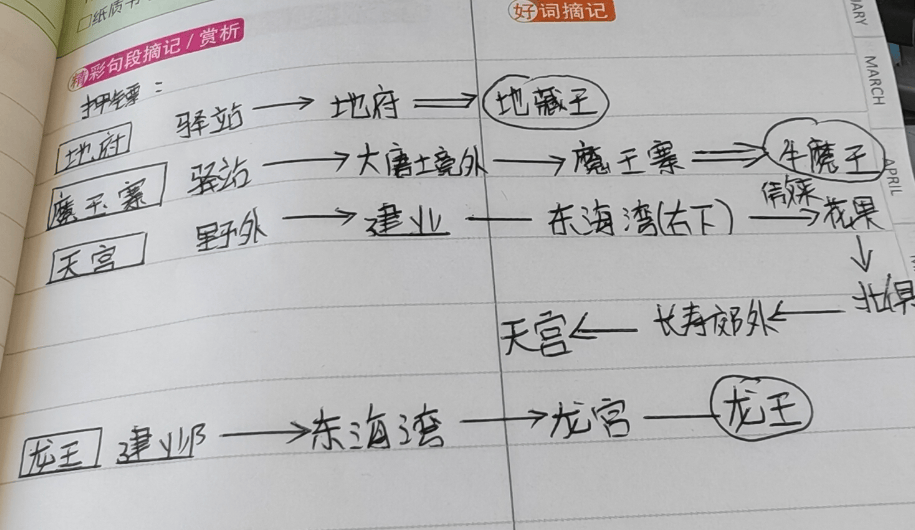 □纸质书
好词摘记
彩句段摘记/赏析
MARCH
APRIL
押镖：
地府 驿站 → 地府 ⇒ 地藏王
魔王寨 驿站 → 大唐境外 → 魔王寨 ⇒ 牛魔王
天宫 野外 → 建业 — 东海湾(右下) → 花果
↓
天宫 ← 长寿郊外 ← 北俱
龙王 建邺 → 东海湾 → 龙宫 — 龙王